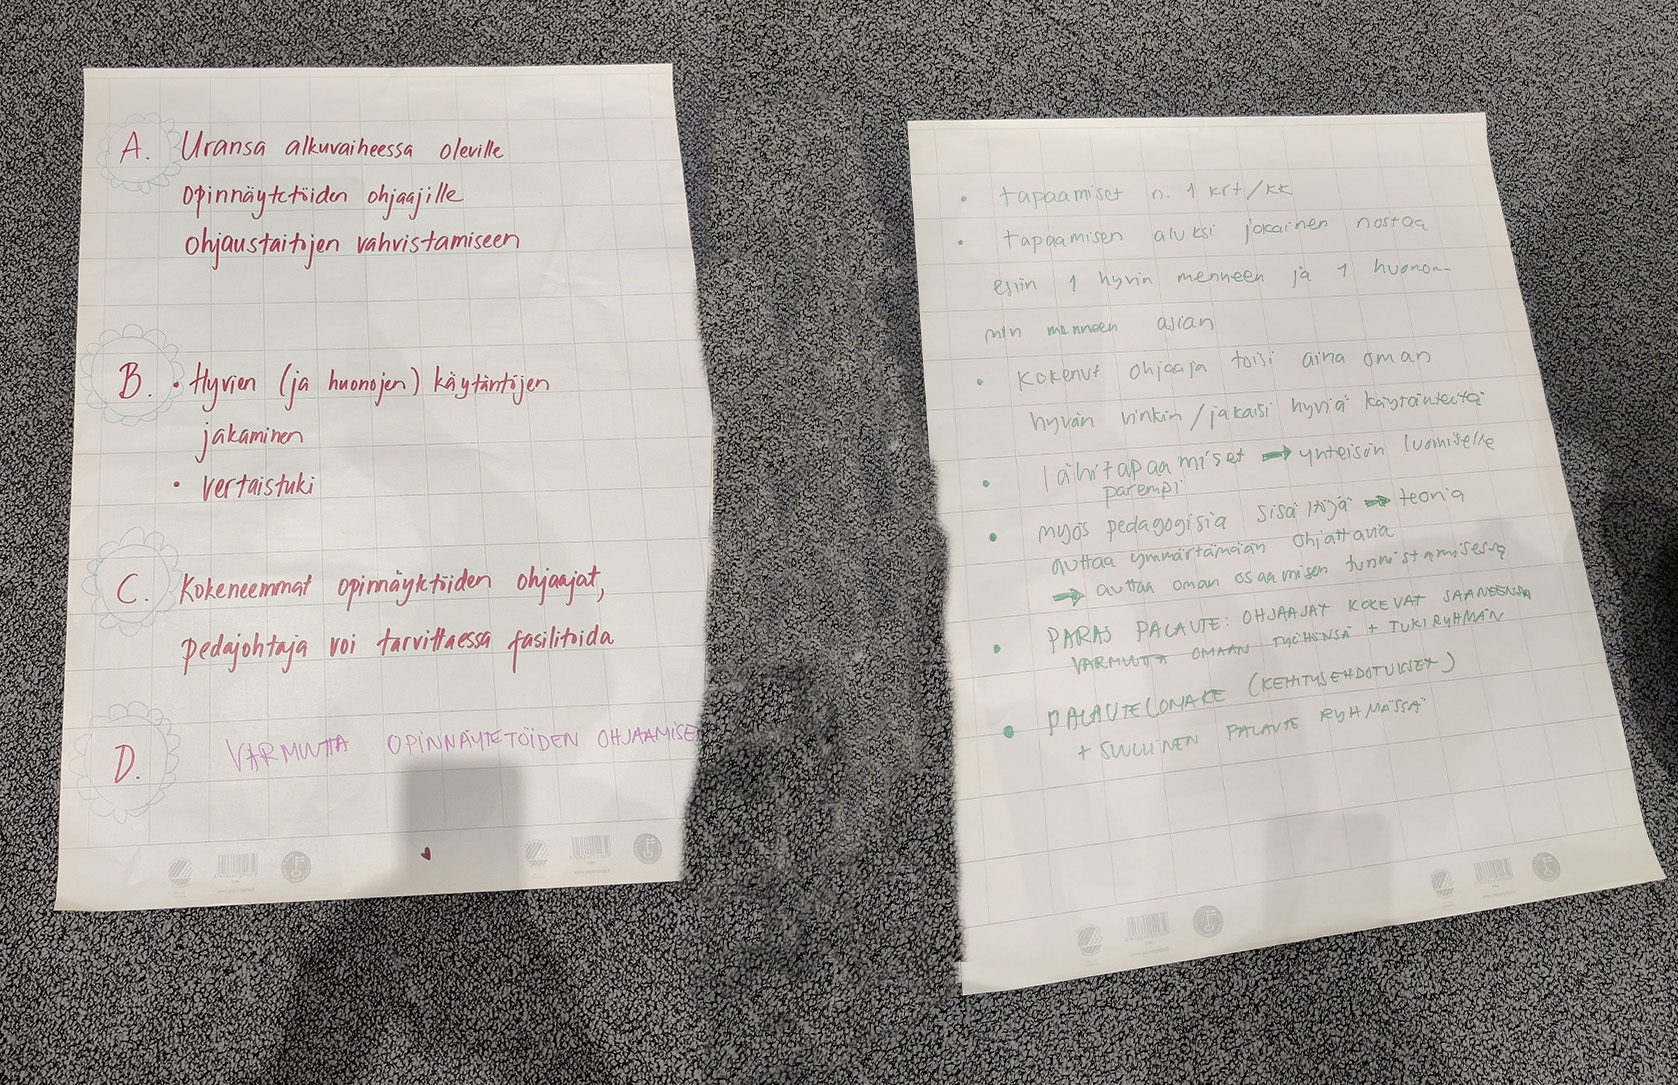 A. Uransa alkuvaiheessa oleville
opinnäytetöiden ohjaajille
ohjaustaitojen vahvistamiseen
B. • Hyvien (ja huonojen) käytäntöjen
jakaminen
• vertaistuki
C. Kokeneemmat opinnäytetöiden ohjaajat,
pedajohtaja voi tarvittaessa fasilitoida
D. VARMUUTTA OPINNÄYTETÖIDEN OHJAAMISE
• tapaamiset n. 1 krt/kk
• tapaamisen aluksi jokainen nostaa
esiin 1 hyvin menneen ja 1 huonom-
min menneen asian
• kokenut ohjaaja toisi aina oman
hyvän vinkin/jakaisi hyviä käytänteitä
• lähitapaamiset → yhteisön luomiselle
parempi
• myös pedagogisia sisältöjä → teoria
auttaa ymmärtämään ohjattavia
→ auttaa oman osaamisen tunnistamisessa
• PARAS PALAUTE: OHJAAJAT KOKEVAT SAANEENSA
VARMUUTTA OMAAN TYÖHÖNSÄ + TUKIRYHMÄN
• PALAUTELOMAKE (KEHITYSEHDOTUKSET)
+ SUULLINEN PALAUTE RYHMÄSSÄ